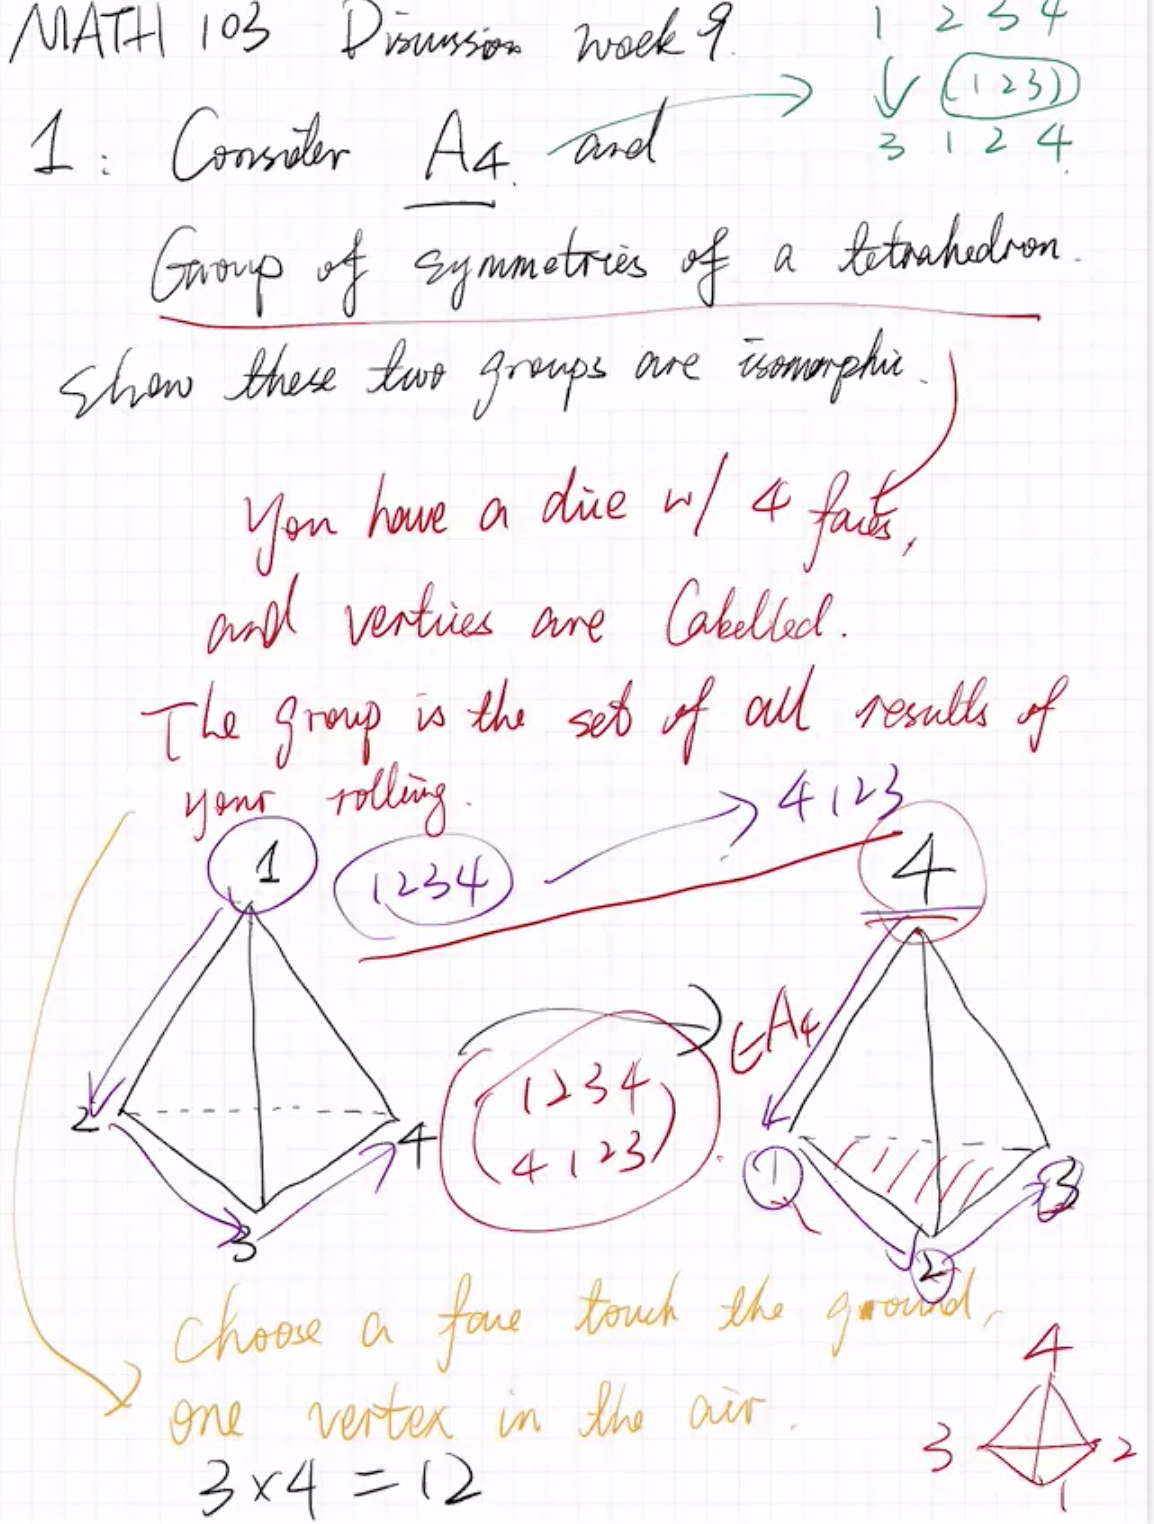 MATH 103 Discussion week 9.
1 2 3 4
(1 2 3)
3 1 2 4
1: Consider A4 and
Group of symmetries of a tetrahedron.
Show these two groups are isomorphic.
You have a dice w/ 4 faces,
and vertices are labelled.
The group is the set of all results of
your rolling.
1234
4123
1
4
1 2 3 4
4 1 2 3
∈A4
2
3
4
1
2
3
Choose a face touch the ground,
one vertex in the air.
3×4=12
4
3
2
1